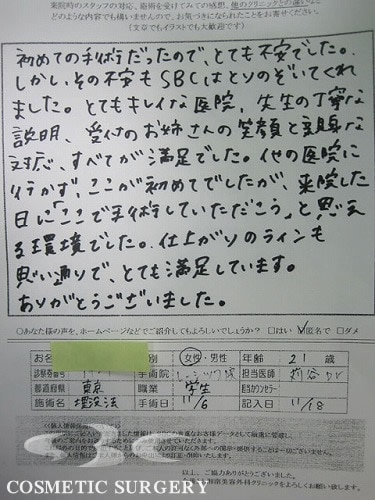 来院時のスタッフの対応、施術を受けてみての感想、他のクリニックとの違いなど
どのような内容でも構いませんので、お気づきになられたことをお寄せください。
(文章でもイラストでも大歓迎です)
初めての手術だったので、とても不安でした。
しかし、その不安もSBCはとりのぞいてくれ
ました。とてもキレイな医院、先生の丁寧な
説明、受付のお姉さんの笑顔と親身な
対応、すべてが満足でした。他の医院に
行かず、ここが初めてでしたが、来院した
日に「ここで手術していただこう」と思え
る環境でした。仕上がりのラインも
思い通りで、とても満足しています。
ありがとうございました。
○あなた様の声を、ホームページなどでご紹介してもよろしいでしょうか? □はい ☑匿名で □ダメ
お名 別 女性・男性 年齢 21 歳
診察券番号 手術院 担当医師
都道府県 東京 職業 学生 担当カウンセラー
施術名 埋没法 手術日 11/6 記入日 11/18
以上、ご協力ありがとうございました。
COSMETIC SURGERY